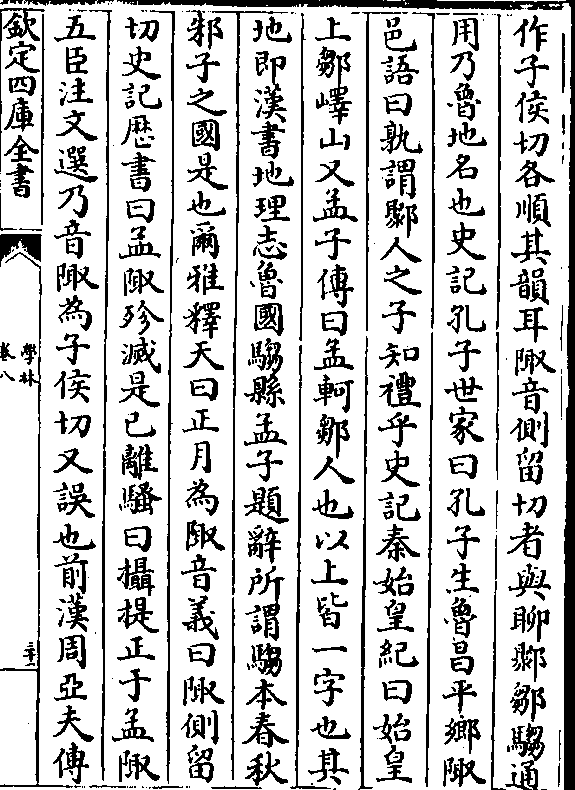 作子侯切各順其韻耳陬音側留切者與聊鄹鄒騶通
用乃魯地名也史記孔子世家曰孔子生魯昌平鄉陬
邑語曰孰謂鄹人之子知禮乎史記秦始皇紀曰始皇
上鄒嶧山又孟子傳曰孟軻鄒人也以上皆一字也其
地即漢書地理志魯國騶縣孟子題辭所謂騶本春秋
邾子之國是也爾雅釋天曰正月為陬音義曰陬側留
切史記歴書曰孟陬殄滅是已離騷曰攝提正于孟陬
五臣注文選乃音陬為子侯切又誤也前漢周亞夫傳
欽定四庫全書
學林
卷八